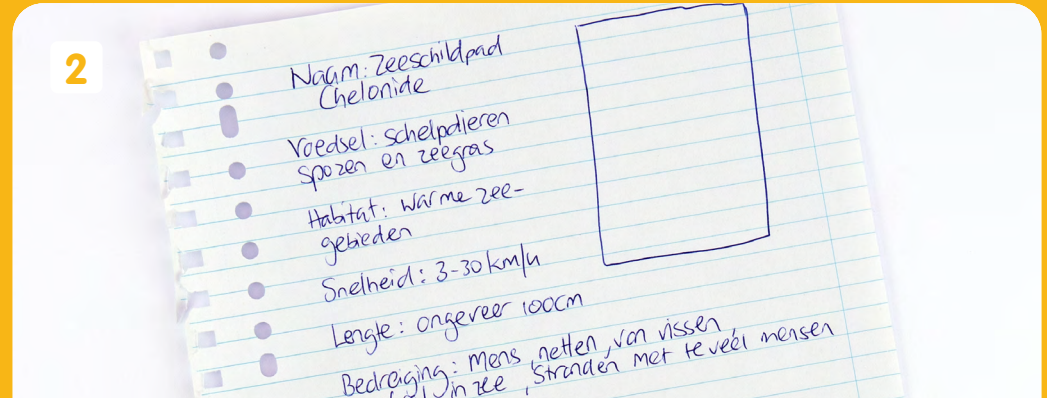 2
Naam: Zeeschildpad
Chelonide
Voedsel: schelpdieren
spozen en zeegras
Habitat: warme zee-
gebieden
Snelheid: 3-30 km/u
Lengte: ongeveer 100cm
Bedreiging: Mens, netten van vissen,
in zee, Stranden met te veel mensen